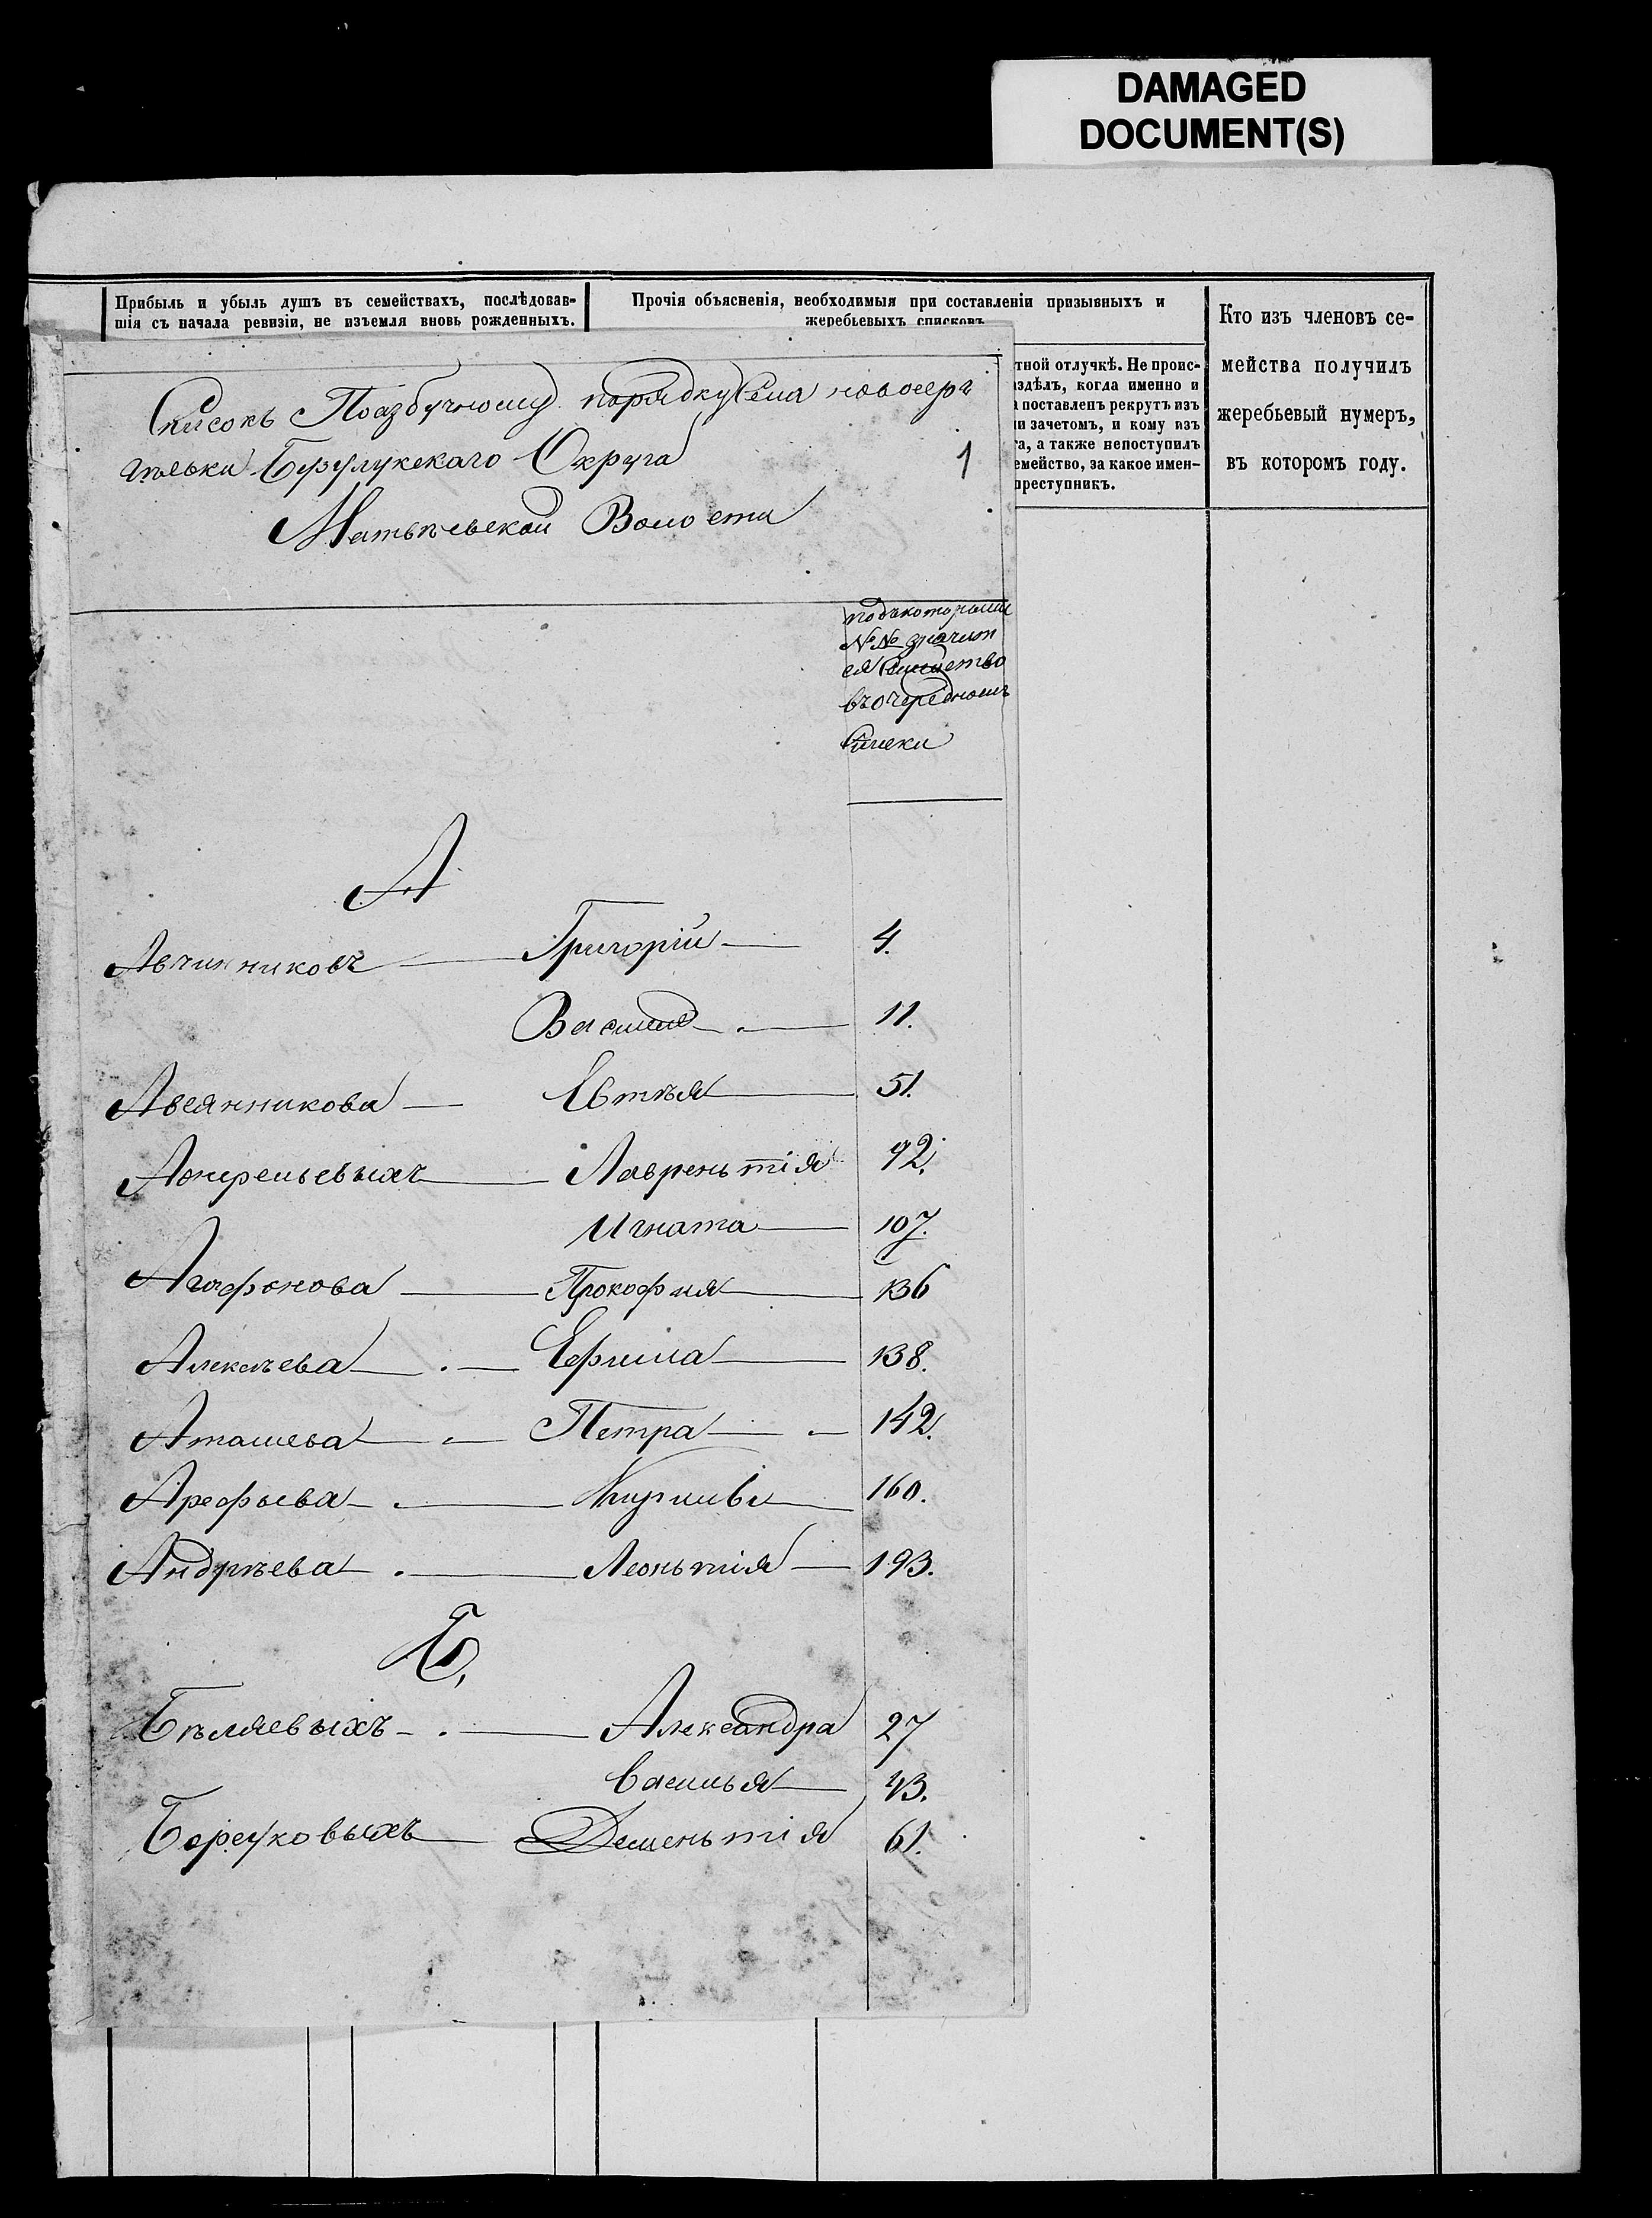 DAMAGED
DOCUMENT(S)
Прибыль и убыль душъ въ семействахъ, послѣдовав-
шія съ начала ревизіи, не изъемля вновь рожденныхъ.
Прочія объясненія, необходимыя при составленіи призывныхъ и
жеребьевыхъ списковъ
тной отлучкѣ. Не проис-
здѣлъ, когда именно и
поставленъ рекрутъ изъ
и зачетомъ, и кому изъ
та, а также непоступилъ
емейство, за какое имен-
преступникъ.
Кто изъ членовъ се-
мейства получилъ
жеребьевый нумеръ,
въ которомъ году.
Списокъ Поазбучному порядку Села новосерг
іевки Бузулукскаго Округа
1
Матвѣевской Волости
подъкоторыми
№№ значит
ся семейство
въ очередномъ
Списки
А
Авчинниковъ Григорій 4.
Василий 11.
Авсянникова Евтѣя 51.
Лаврентія 92.
Игната 107.
Агафонова Прокофия 136
Алексѣева Ефима 138.
Аташева Петра 142.
Арефьева 160.
Андрѣева Леоньтія 193.
Б,
Бѣляевыхъ Александра 27
Василья 43.
Дементія 61.